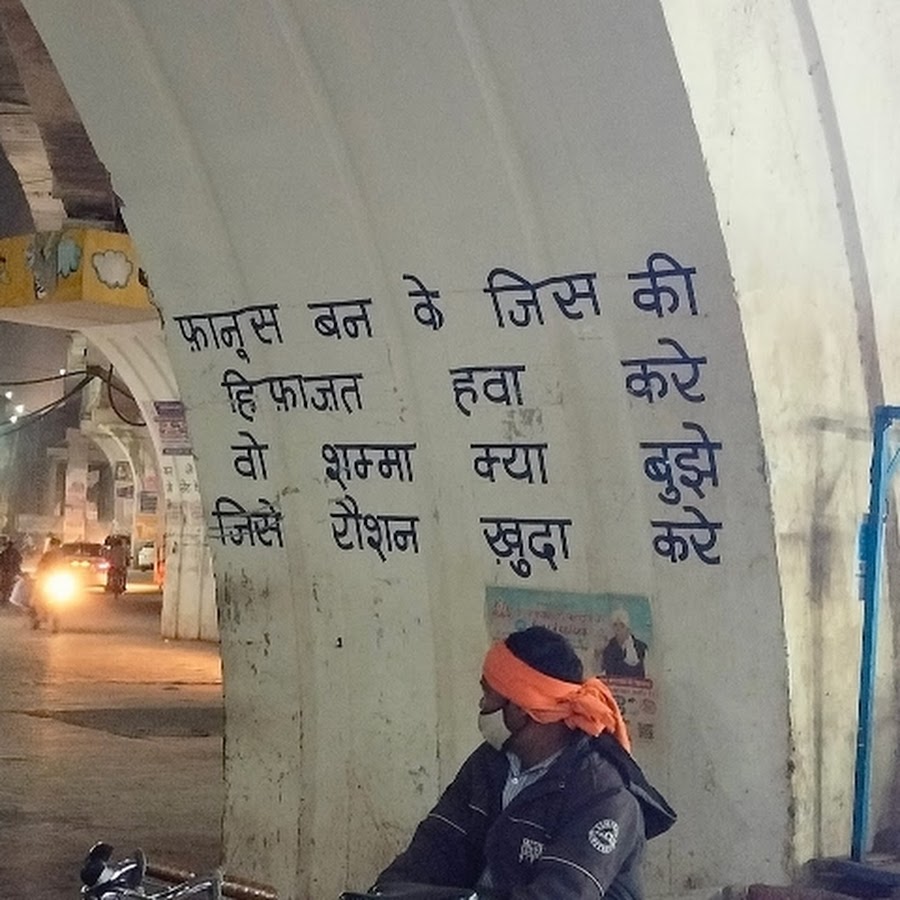 फ़ानूस बन के जिस की
हिफ़ाज़त हवा करे
वो शम्मा क्या बुझे
जिसे रौशन ख़ुदा करे